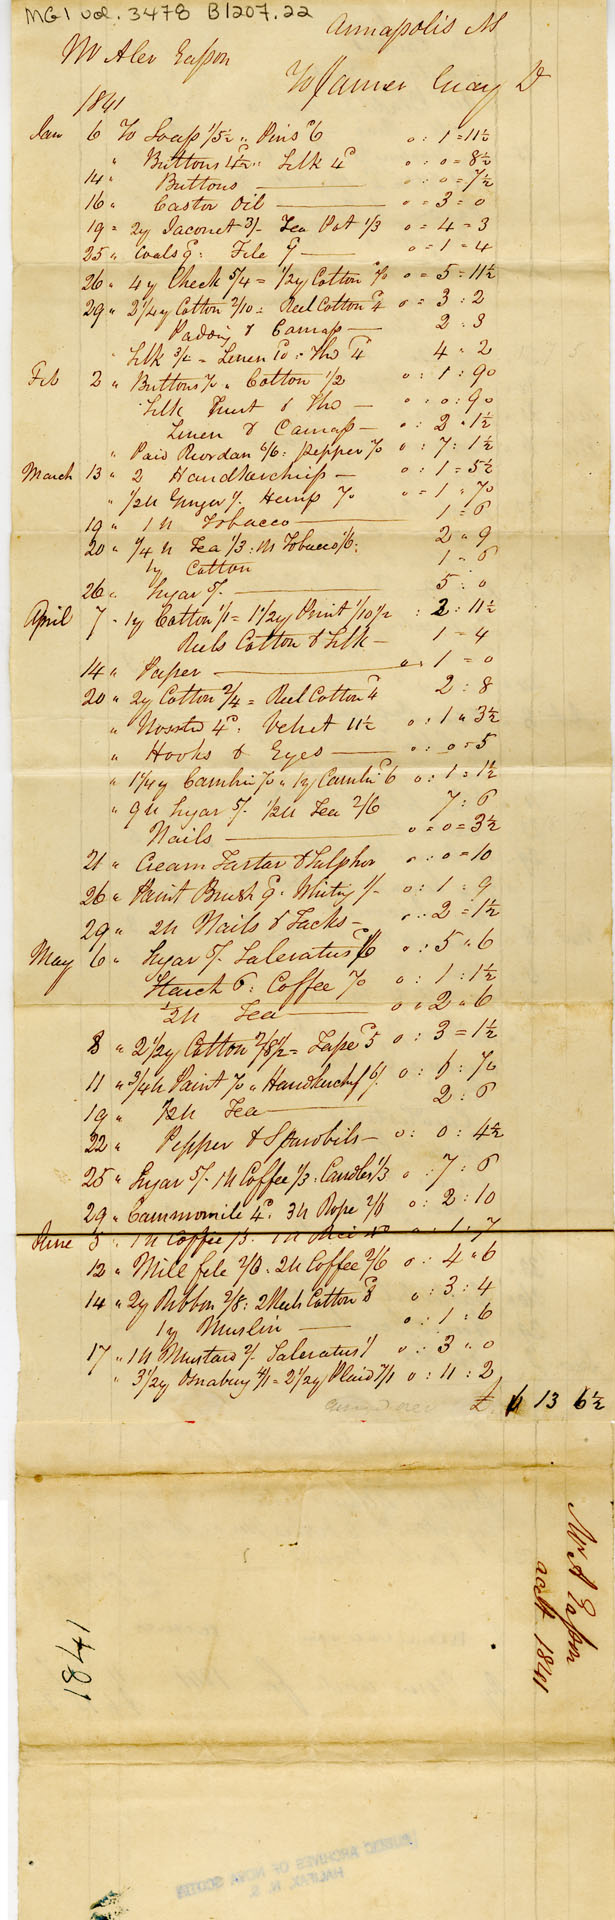 MG1 vol. 3478 B1207.22
Annapolis
Mr Alex Easson
To James Gray Dr
1841
Jan 6 To Soap 1/5½ " Pins 6d 0 : 1 = 11½
" Buttons 4½ " Silk 4d 0 : 0 = 8½
14 " Buttons 0 : 0 = 7½
16 " Castor Oil 0 = 3 = 0
19 " 2y Jaconet 3/- Tea Pot 1/3 0 = 4 = 3
25 " File 0 = 1 = 4
26 " 4y Check 5/4 = 1/2y Cotton 0 = 5 = 11½
29 " 2¼y Cotton 2/10 = Reel Cotton 4d 0 = 3 : 2
Padding & Canvass 2 : 3
Silk = Linen : Tho 4d 4 " 2
Feb 2 " Buttons " Cotton 1/2 0 : 1 : 9
Silk Twist & Tho 0 : 0 : 9
Linen & Canvass 0 : 2 " 1½
" Paid Reordan 6/6 : Pepper 0 : 7 : 1½
March 13 " 2 Handkerchiefs 0 : 1 = 5½
" 1/2 lb Ginger Hemp 0 = 1 " 7
19 " 1 lb Tobacco 1 = 6
20 " 1/4 lb Tea 1/3 : 1 lb Tobacco 1/6 : 2 " 9
1y Cotton 1 - 6
26 " Sugar 5/- 5 : 0
April 7 " 1y Cotton 1/1 = 1½y Print 1/10½ : 2 : 11½
Reels Cotton & Silk 1 = 4
14 " Paper 0 1 = 0
20 " 2y Cotton 2/4 = Reel Cotton 4d 2 : 8
" Worsted 4d : Velvet 11½ 0 : 1 " 3½
" Hooks & Eyes 0 : 0 = 5
" 1¼y Cambric " 1y Cambric 6 0 : 1 = 1½
" 9 lb Sugar 5/- 1/2 lb Tea 2/6 7 : 6
Nails 0 = 0 = 3½
21 " Cream Tartar & Sulphur 0 : 0 = 10
26 " Paint Brush 9d. Whitg 1/- 0 : 1 = 9
29 " 2 lb Nails & Tacks 0 : 2 = 1½
May 6 " Sugar 5/- Saleratus 6 0 : 5 " 6
Starch 6 : Coffee 0 : 1 : 1½
1/2 lb Tea 0 " 2 " 6
8 " 2½y Cotton 2/8½ = Tape 5d 0 : 3 = 1½
11 " 3/4 lb Paint " Handkerchf 0 : :
19 " 1/2 lb Tea 2 : 6
22 " Pepper & 0 : 0 : 4½
25 " Sugar 5/- 1 lb Coffee 1/3 : Candles 1/3 0 : 7 : 6
29 " Cammomile 4d. 3 lb Rope 2/6 0 : 2 : 10
June 5 " 1 lb Coffee 1/3 : 0 : 1 : 7
12 " Mill file 2/3 : 2 lb Coffee 2/6 0 : 4 " 6
14 " 2y Ribbon 2/8 : 2 Reels Cotton 8d 0 : 3 : 4
1y Muslin 0 : 1 : 6
17 " 1 lb Mustard 2/- Saleratus 1/ 0 : 3 " 0
" 3½y Osnabury 4/1 = 2½y Plaid 7/1 0 : 11 : 2
£ 6 13 6½
Mr A Easson
acct 1841
1841
PUBLIC ARCHIVES OF NOVA SCOTIA
HALIFAX, N. S.